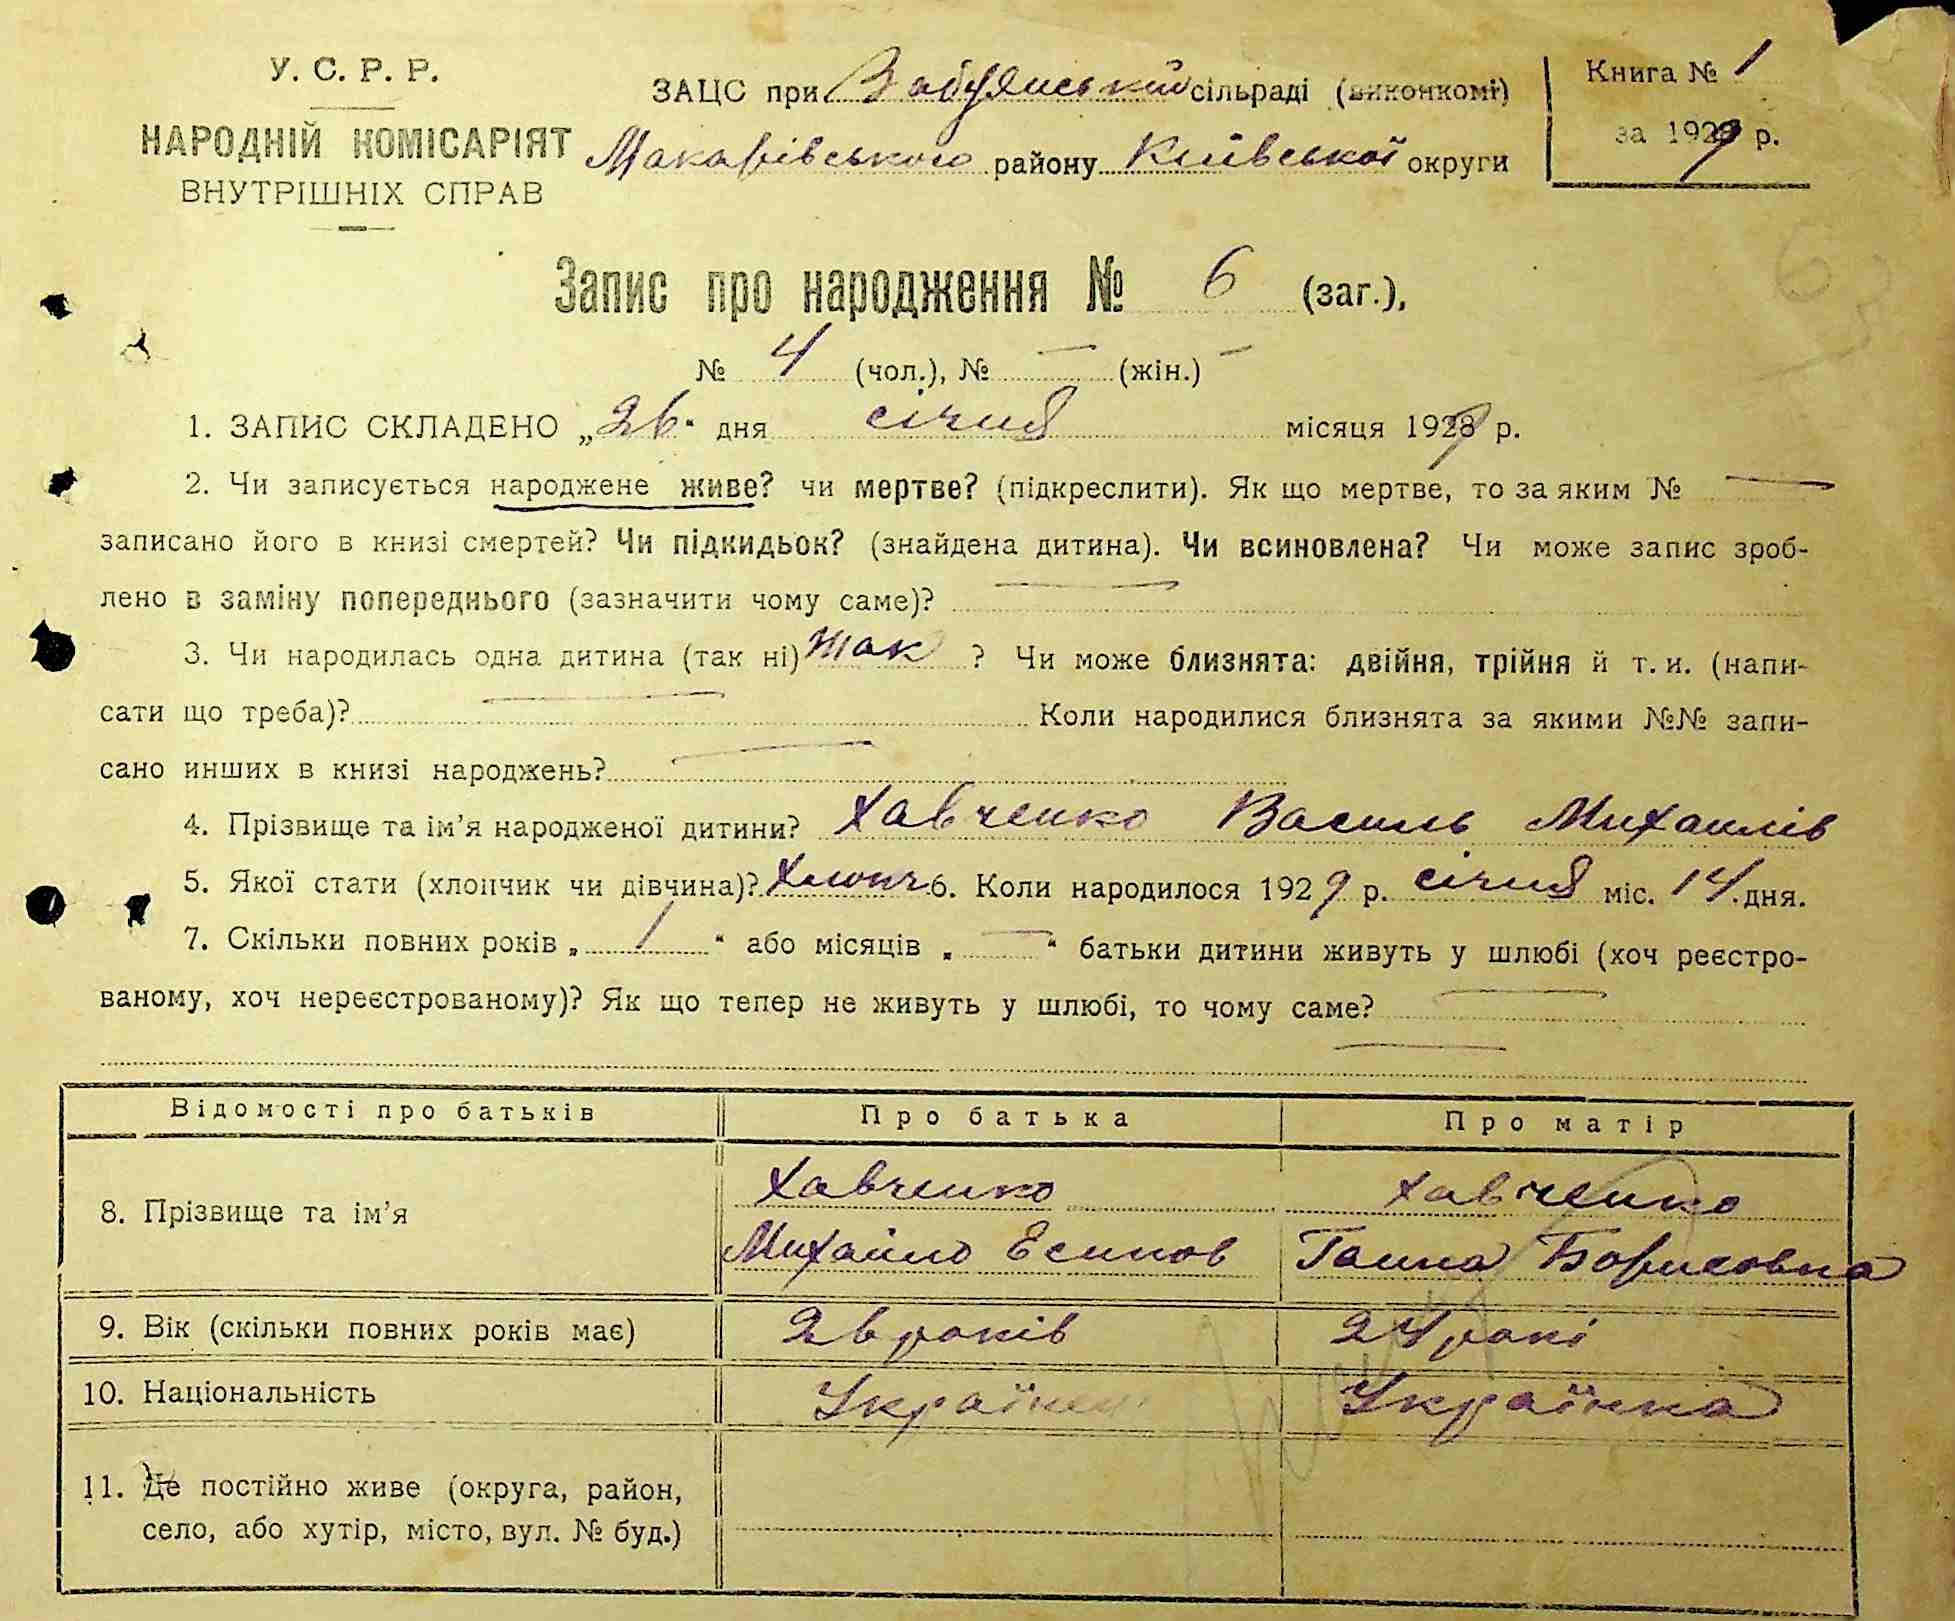 У. С. Р. Р.
НАРОДНІЙ КОМІСАРІЯТ
ВНУТРІШНІХ СПРАВ
ЗАЦС при Забуянській сільраді (виконкомі)
Макарівського району Київської округи
Книга № 1
за 1929 р.
63
Запис про народження № 6 (заг.),
№ 4 (чол.), № — (жін.) —
1. ЗАПИС СКЛАДЕНО „26“ дня січня місяця 1929 р.
2. Чи записується народжене живе? чи мертве? (підкреслити). Як що мертве, то за яким № —
записано його в книзі смертей? Чи підкидьок? (знайдена дитина). Чи всиновлена? Чи може запис зроб-
лено в заміну попереднього (зазначити чому саме)? —
3. Чи народилась одна дитина (так ні) так ? Чи може близнята: двійня, трійня й т. и. (напи-
сати що треба)? — Коли народилися близнята за якими №№ запи-
сано инших в книзі народжень? —
4. Прізвище та ім’я народженої дитини? Хавченко Василь Михаилів
5. Якої стати (хлопчик чи дівчина)? Хлопч 6. Коли народилося 1929 р. січня міс. 14 дня.
7. Скільки повних років „ 1 “ або місяців „ — “ батьки дитини живуть у шлюбі (хоч реєстро-
ваному, хоч нереєстрованому)? Як що тепер не живуть у шлюбі, то чому саме? —
—
Відомості про батьків Про батька Про матір
8. Прізвище та ім’я Хавченко Хавченко
Михайло Есипов Ганна Борисовна
9. Вік (скільки повних років має) 26 років 24 рокі
10. Національність Українець Українка
11. Де постійно живе (округа, район,
село, або хутір, місто, вул. № буд.)